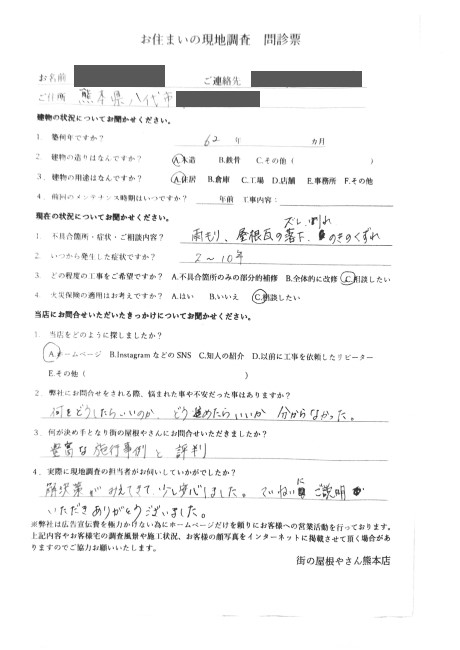 お住まいの現地調査 問診票
お名前 ご連絡先
ご住所 熊本県八代市
建物の状況についてお聞かせください。
1. 築何年ですか? 62 年 カ月
2. 建物の造りはなんですか? A.木造 B.鉄骨 C.その他( )
3. 建物の用途はなんですか? A.住居 B.倉庫 C.工場 D.店舗 E.事務所 F.その他
4. 前回のメンテナンス時期はいつですか? 年前 工事内容:
現在の状況についてお聞かせください。
ズレ、割れ
1. 不具合箇所・症状・ご相談内容? 雨もり、屋根瓦の落下、のきのくずれ
2. いつから発生した症状ですか? 2~10年
3. どの程度の工事をご希望ですか? A.不具合箇所のみの部分的補修 B.全体的に改修 C.相談したい
4. 火災保険の適用はお考えですか? A.はい B.いいえ C.相談したい
当店にお問合せいただいたきっかけについてお聞かせください。
1. 当店をどのように探しましたか?
A.ホームページ B.InstagramなどのSNS C.知人の紹介 D.以前に工事を依頼したリピーター
E.その他( )
2. 弊社にお問合せをされる際、悩まれた事や不安だった事はありますか?
何をどうしたらいいのか、どう進めたらいいか 分からなかった。
3. 何が決め手となり街の屋根やさんにお問合せいただきましたか?
豊富な施行事例と評判
4. 実際に現地調査の担当者がお伺いしていかがでしたか?
解決策がみえてきて、少し安心しました。ていねいにご説明
いただきありがとうございました。
※弊社は広告宣伝費を極力かけない為にホームページだけを頼りにお客様への営業活動を行っております。
上記内容やお客様宅の調査風景や施工状況、お客様の顔写真をインターネットに掲載させて頂く場合があ
りますのでご協力お願いいたします。
街の屋根やさん熊本店